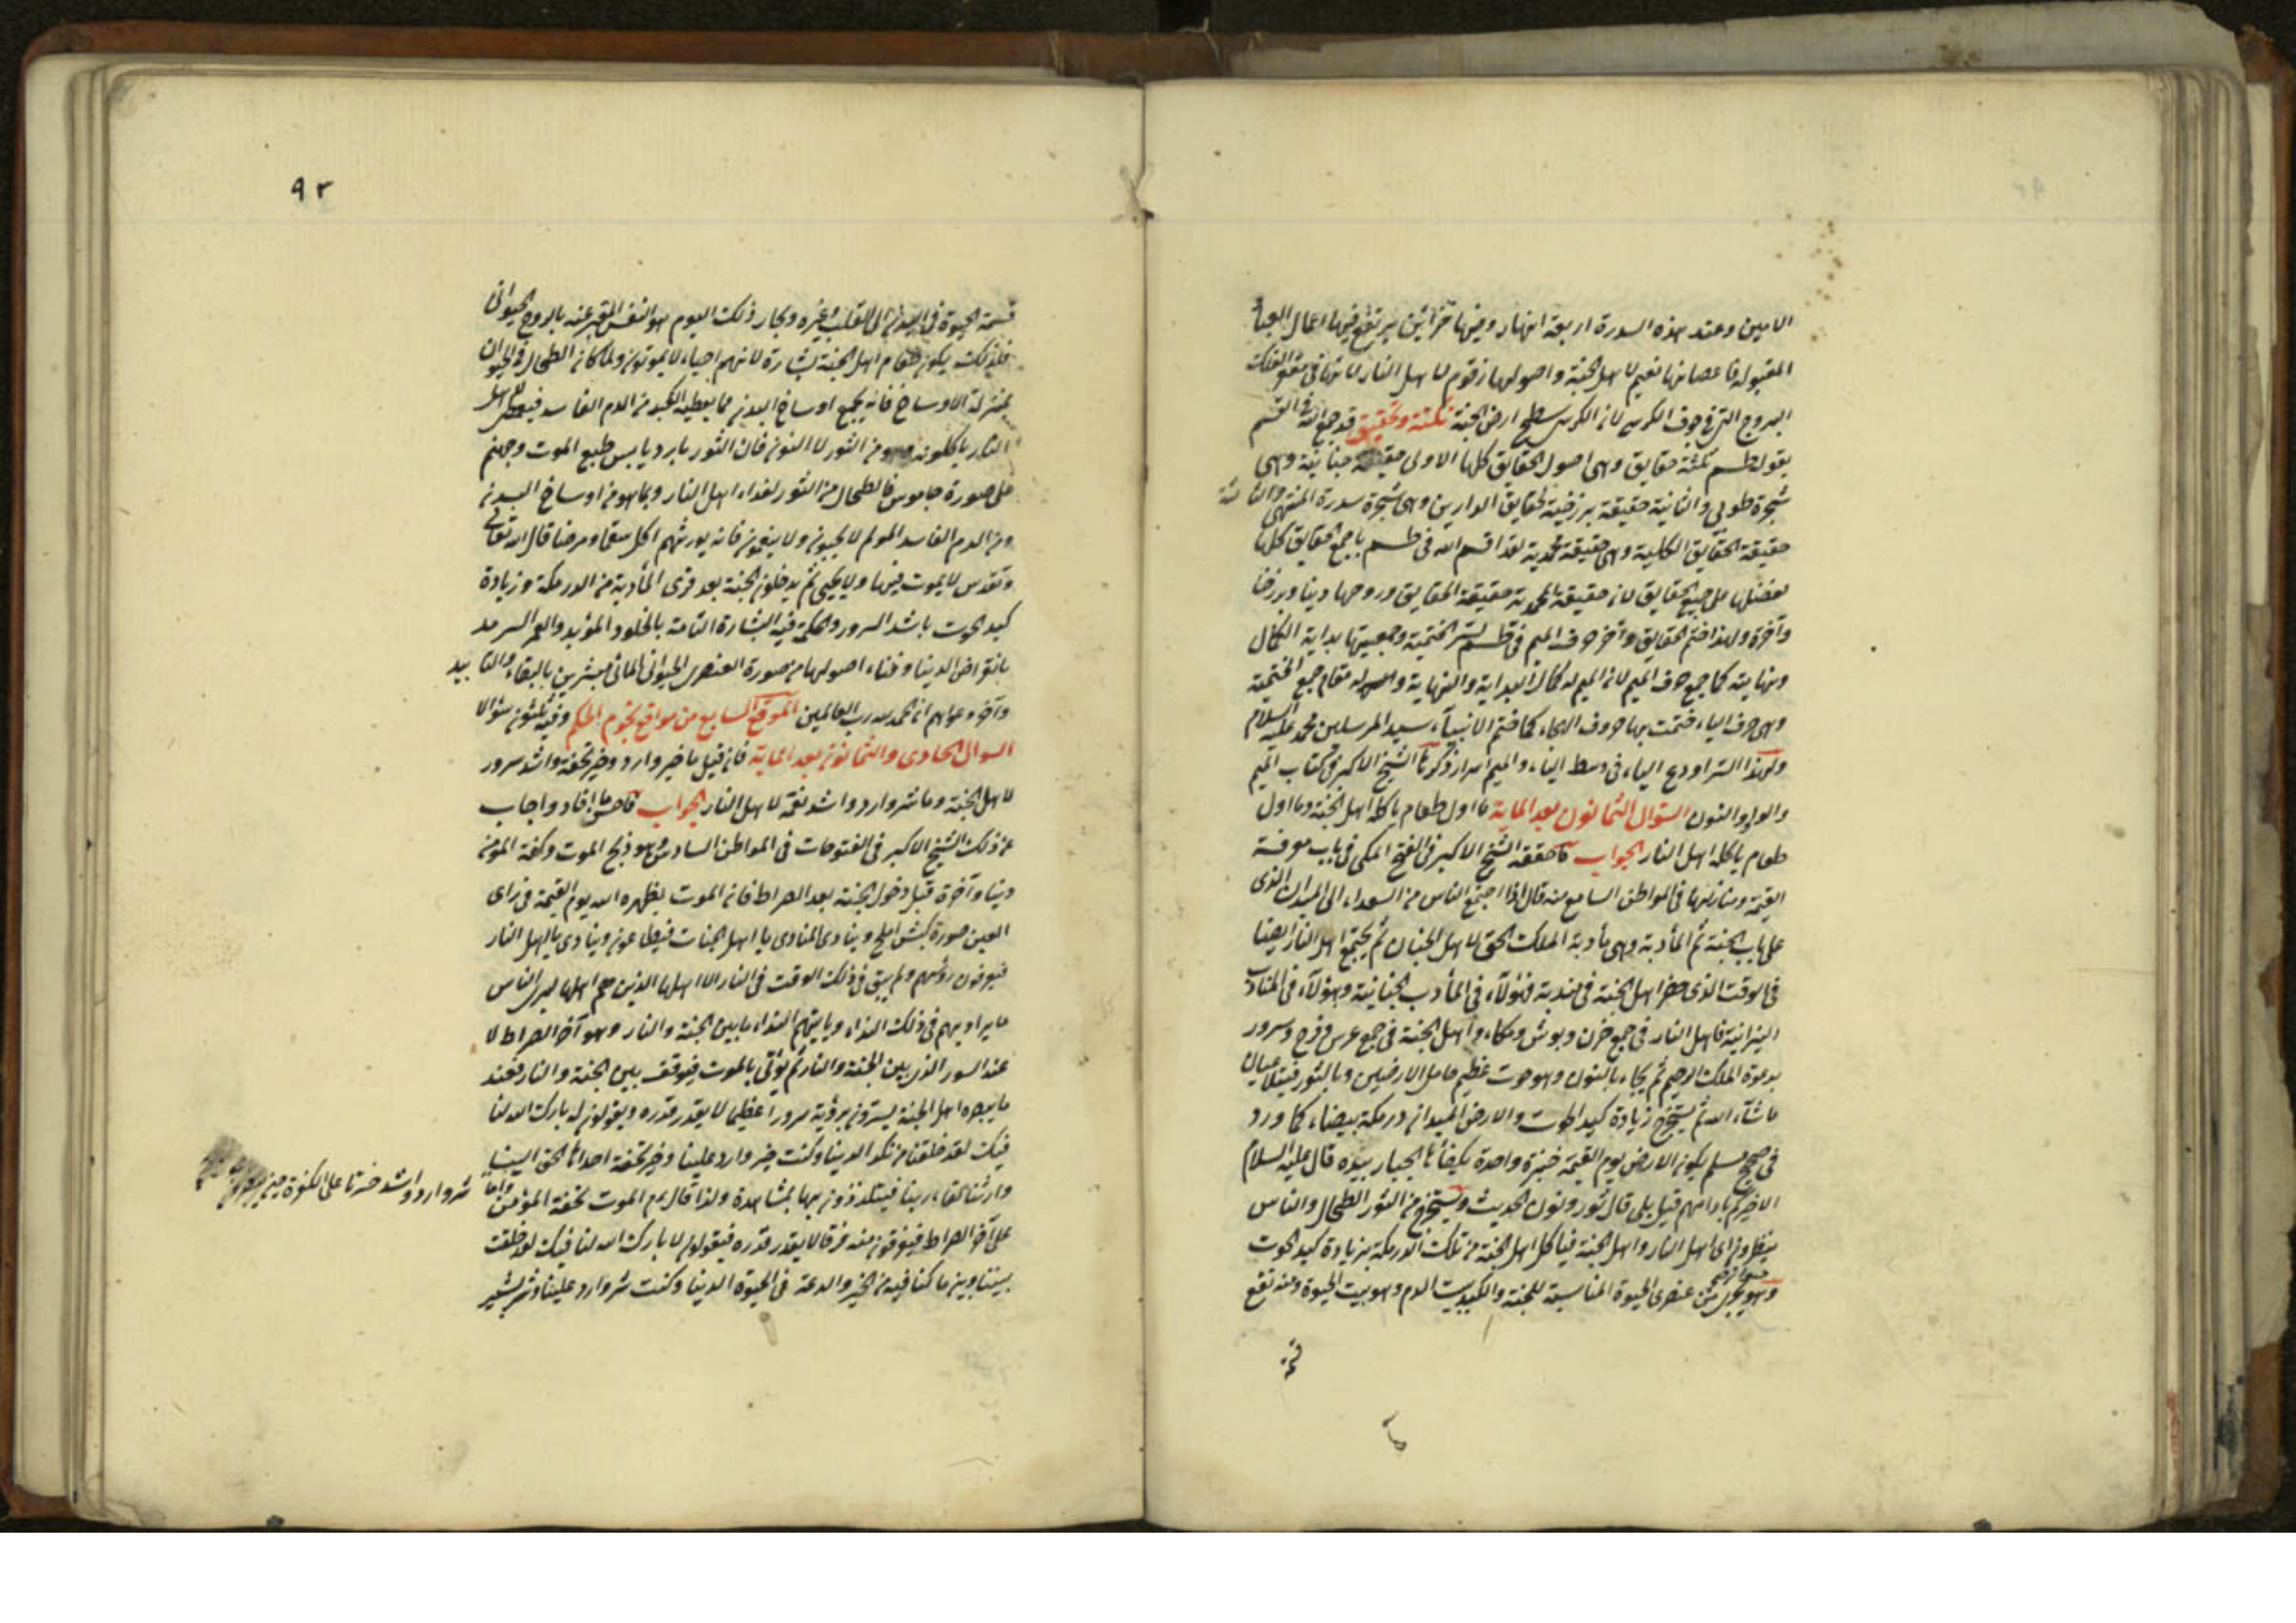 الامين وعند هذه السدرة اربعة انهار وفيها خزائن يرتفع فيها اعمال العباد
المقبولة فاغصانها نعيم لاهل الجنة واصولها زقوم لاهل النار لانها في مقعر الفلك
البروج التي في جوف الكرسي لان الكرسي سطح ارض الجنة نكتة وتحقيق قد جمع الله في القسم
بقوله طسم ثلثة حقايق وهي اصول الحقايق كلها الاولى حقيقة جنانية وهي
شجرة طوبى والثانية حقيقة برزخية لحقايق الدارين وهي شجرة سدرة المنتهى والثالثة
حقيقة الحقايق الكلية وهي حقيقة محمدية لقد اقسم الله في طسم باجمع الحقايق كلها
لفضلها على جميع الحقايق لان حقيقة المحمدية حقيقة الحقايق وروحها دنيا وبرزخا
وآخرة ولهذا ختم الحقايق وآخر حرف الميم في طسم لسر الختمية وجمعيتها بداية الكمال
ونهايته كما جمع حرف الميم لان الميم له كمال البداية والنهاية وله مقام جمع الختمية
وهي حرف الياء ختمت بها حروف الهجاء كما ختم الانبياء سيد المرسلين محمد عليه السلام
ولهذا السر اودع الياء في وسط الياء والميم اسرار ذكرها الشيخ الاكبر في كتاب الميم
والواو والنون السؤال الثمانون بعد الماية ما اول طعام ياكله اهل الجنة وما اول
طعام ياكله اهل النار الجواب ما حققه الشيخ الاكبر في الفتح المكي في باب معرفة
القيمة ومنازلها في المواطن السابع منه قال اذا اجتمع الناس من السعداء الى الميدان الذي
على باب الجنة ثم المأدبة وهي مأدبة الملك الحق لاهل الجنان ثم يجتمع اهل النار ايضا
في الوقت الذي حضر اهل الجنة في مندبة فهؤلاء في المأدب الجنانية وهؤلاء في المنادب
النيرانية فاهل النار في جمع حزن وبوش وبكاء واهل الجنة في جمع عرس وفرح وسرور
بدعوة الملك الرحيم ثم يجاء بالنون وهو حوت عظيم حامل الارضين وبالثور فيتلاعبان
ما شاء الله ثم يستخرج زيادة كبد الحوت والارض الميدان درمكة بيضاء كما ورد
في صحيح مسلم يكون الارض يوم القيمة خبزة واحدة يكفأها الجبار بيده قال عليه السلام
الا اخبركم بادامهم قيل بلى قال ثور ونون الحديث ويستخرج من الثور الطحال والناس
ينظرون اي اهل النار واهل الجنة فياكل اهل الجنة من تلك الدرمكة بزيادة كبد الحوت
وهو حيوان عنصري الحيوة المناسبة للجنة والكبد بيت الدم وهو بيت الحيوة ومنه تقع
٩٢
قسمة الحيوة في البدن الى القلب وغيره وبخار ذلك الدم هو النفس المعبر عنه بالروح الحيواني
فلذلك يكون طعام اهل الجنة بشارة لانهم احياء لا يموتون ولما كان الطحال في الحيوان
بمنزلة الاوساخ فانه يجمع اوساخ البدن مما يعطيه الكبد من الدم الفاسد فيعطى لاهل
النار ياكلونه وهو من الثور لا النون فان الثور بارد يابس طبع الموت وجهنم
على صورة جاموس فالطحال من الثور لغذاء اهل النار وبما هو من اوساخ البدن
ومن الدم الفاسد المولم لا يحيون ولا ينعمون فانه يورثهم اكل سقما ومرضا قال الله تعالى
وتقدس لا يموت فيها ولا يحيى ثم يدخلون الجنة بعد قرى المأدبة من الدرمكة وزيادة
كبد الحوت باشد السرور والحكمة فيه البشارة التامة بالخلود المؤبد والعمر السرمد
بانقراض الدنيا وفناء اصولها من صورة العنصري الحيواني المائي مبشرين بالبقاء والتابيد
وآخر دعواهم ان الحمد لله رب العالمين الموقع السابع من مواقع نجوم الحكم وفيه ثلثون سؤالا
السوال الحادي والثمانون بعد الماية فان قيل ما خير وارد وخير تحفة واشد سرور
لاهل الجنة وما شر وارد واشد نقمة لاهل النار الجواب ما افاد واجاب
عن ذلك الشيخ الاكبر في الفتوحات في المواطن السادس وهو ذبح الموت وتحفة المؤمن
دنيا وآخرة قبل دخول الجنة بعد الصراط فان الموت يظهره الله يوم القيمة في رأي
العين صورة كبش املح وينادي المنادي يا اهل الجنات فيطلعون وينادي يا اهل النار
فيرفعون رؤسهم ولم يبق في ذلك الوقت في النار الا اهلها الذين هم اهلها ليرى الناس
ما يراد بهم في ذلك النداء وياتيهم النداء ما بين الجنة والنار وهو آخر الصراط لا
عند السور الذي بين الجنة والنار ثم يؤتى بالموت فيوقف بين الجنة والنار فعند
ما يبصره اهل الجنة يسترون برؤية سرورا عظيما لا يقدر قدره ويقولون له بارك الله لنا
فيك لقد خلصتنا من نكد الدنيا وكنت خير وارد علينا وخير تحفة اهداها الحق الينا
وارثنا لقاء ربنا فيتلذذون بها بمشاهدة ولذا قال عم الموت تحفة المؤمن واما
شر وارد واشد حسرتا على الكفرة حين
على آخر الصراط فيفرقون منه فرقا لا يقدر قدره فيقولون لا بارك الله لنا فيك لقد خلفت
بيننا وبين ما كنا فيه من الخير والدعة في الحيوة الدنيا وكنت شر وارد علينا وشر بشير